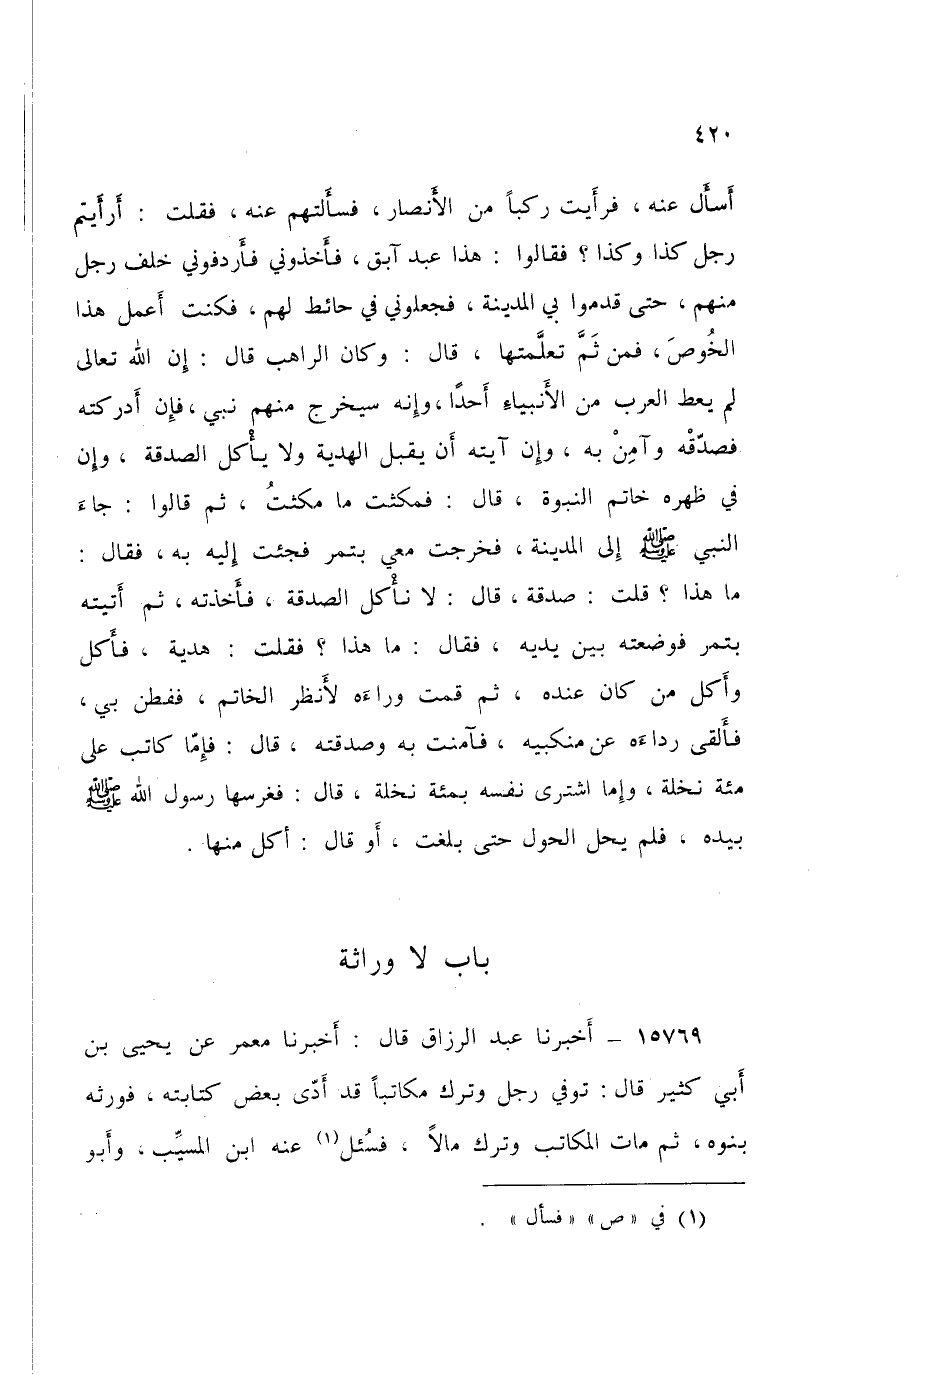 ٤٢٠
أَسأَل عنه ، فرأَيت ركباً من الأَنصار ، فسأَلتهم عنه ، فقلت : أَرأَيتم
رجل كذا وكذا ؟ فقالوا : هذا عبد آبق ، فأَخذوني فأَردفوني خلف رجل
منهم ، حتى قدموا بي المدينة ، فجعلوني في حائط لهم ، فكنت أَعمل هذا
الخُوصَ ، فمن ثَمَّ تعلَّمتها ، قال : وكان الراهب قال : إِن الله تعالى
لم يعط العرب من الأَنبياءِ أَحدًا ، وإِنه سيخرج منهم نبي ، فإِن أَدركته
فصدّقْه وآمِنْ به ، وإِن آيته أَن يقبل الهدية ولا يأْكل الصدقة ، وإِن
في ظهره خاتم النبوة ، قال : فمكثت ما مكثتُ ، ثم قالوا : جاءَ
النبي ﷺ إِلى المدينة ، فخرجت معي بتمر فجئت إِليه به ، فقال :
ما هذا ؟ قلت : صدقة ، قال : لا نأْكل الصدقة ، فأَخذته ، ثم أَتيته
بتمر فوضعته بين يديه ، فقال : ما هذا ؟ فقلت : هدية ، فأَكل
وأَكل من كان عنده ، ثم قمت وراءَه لأَنظر الخاتم ، ففطن بي ،
فأَلقى رداءَه عن منكبيه ، فآمنت به وصدقته ، قال : فإِمّا كاتب على
مئة نخلة ، وإِما اشترى نفسه بمئة نخلة ، قال : فغرسها رسول الله ﷺ
بيده ، فلم يحل الحول حتى بلغت ، أَو قال : أكل منها .
باب لا وراثة
١٥٧٦٩ – أَخبرنا عبد الرزاق قال : أَخبرنا معمر عن يحيى بن
أَبي كثير قال : توفي رجل وترك مكاتباً قد أَدّى بعض كتابته ، فورثه
بنوه ، ثم مات المكاتب وترك مالاً ، فسُئل(١) عنه ابن المسيِّب ، وأَبو
(١) في « ص » « فسأل » .